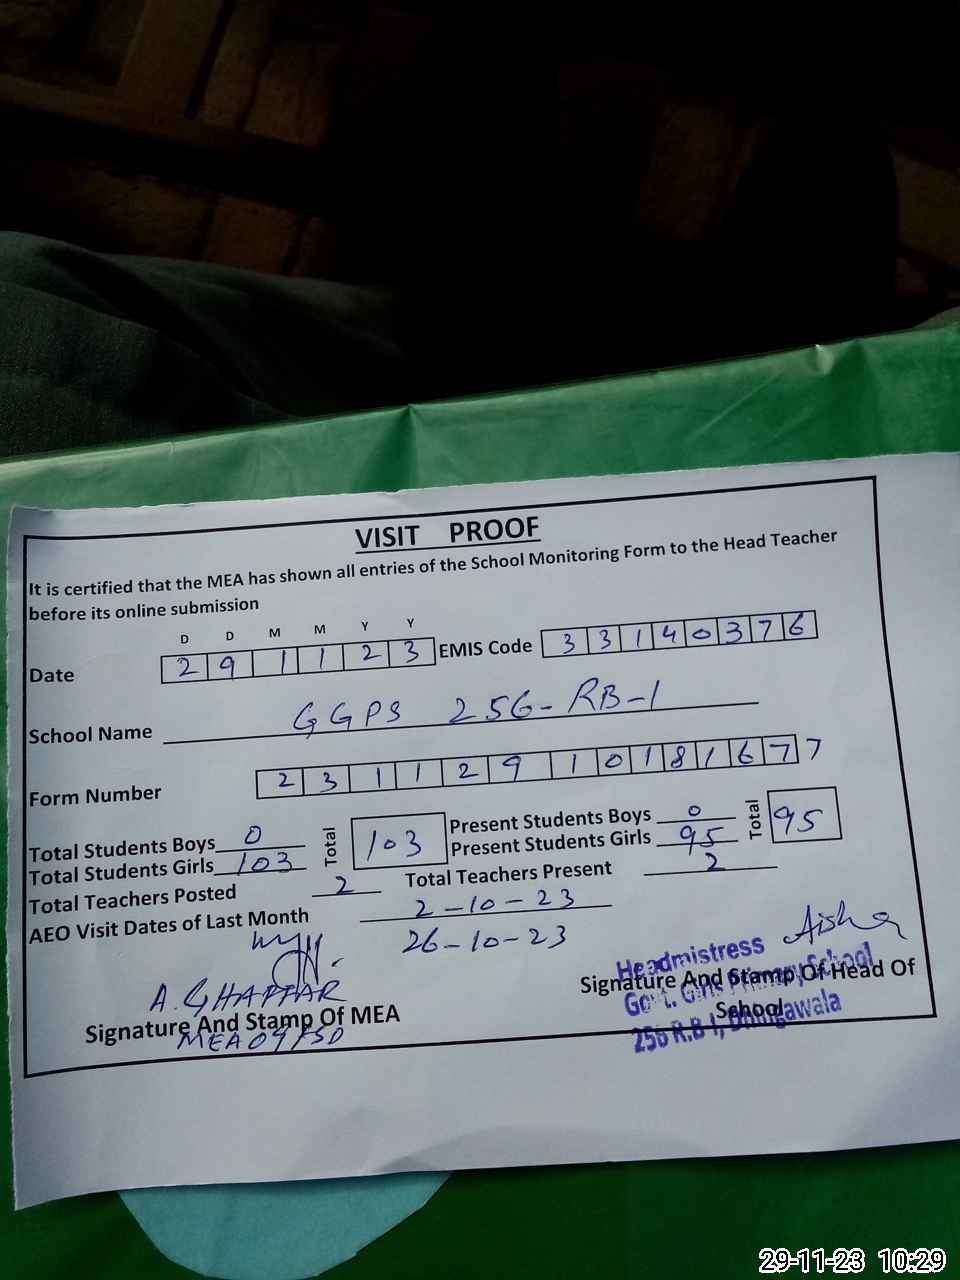 VISIT PROOF
It is certified that the MEA has shown all entries of the School Monitoring Form to the Head Teacher
before its online submission
D D M M Y Y
Date 2 9 1 1 2 3 EMIS Code 3 3 1 4 0 3 7 6
School Name GGPS 256-RB-1
Form Number 2 3 1 1 2 9 1 0 1 8 1 6 7 7
Total Students Boys 0 Total 103 Present Students Boys 0 Total 95
Total Students Girls 103 Present Students Girls 95
Total Teachers Posted 2 Total Teachers Present 2
AEO Visit Dates of Last Month 2-10-23
26-10-23
A. GHAFFAR
Signature And Stamp Of MEA
MEA 09 FSD
Aisha
Headmistress
Signature And Stamp Of Head Of
School
Govt. Girls Primary School
256 R.B I,
29-11-23 10:29